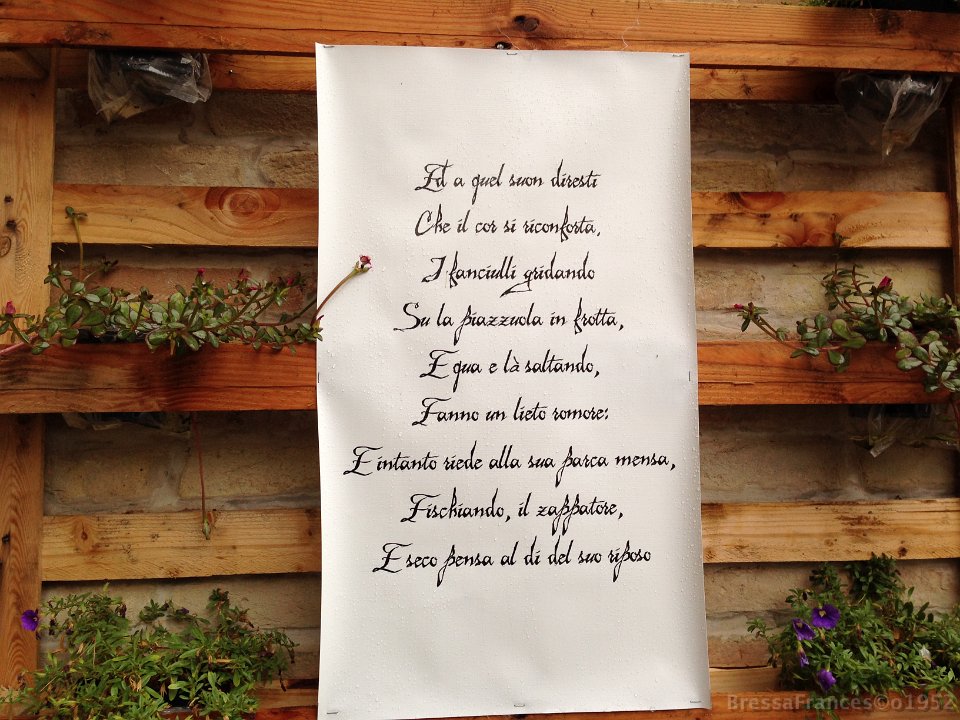 Ed a quel suon diresti
Che il cor si riconforta.
I fanciulli gridando
Su la piazzuola in frotta,
E qua e là saltando,
Fanno un lieto romore:
E intanto riede alla sua parca mensa,
Fischiando, il zappatore,
E seco pensa al dì del suo riposo
BressaFrances©o1952